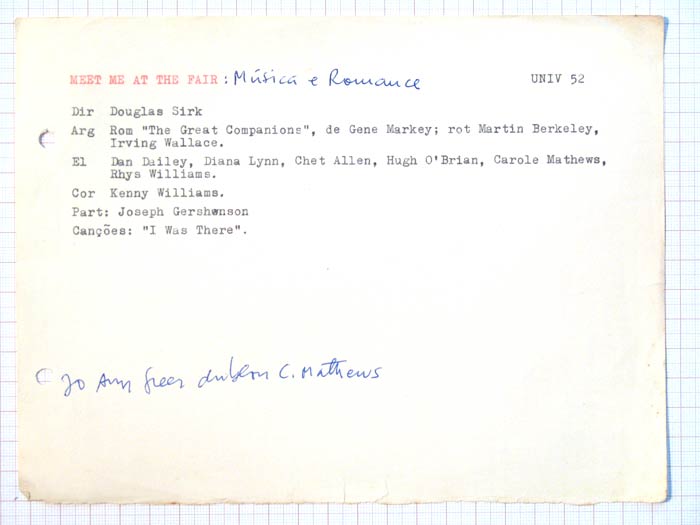 MEET ME AT THE FAIR : Música e Romance UNIV 52
Dir Douglas Sirk
Arg Rom "The Great Companions", de Gene Markey; rot Martin Berkeley,
Irving Wallace.
El Dan Dailey, Diana Lynn, Chet Allen, Hugh O'Brian, Carole Mathews,
Rhys Williams.
Cor Kenny Williams.
Part: Joseph Gershenson
Canções: "I Was There".
Jo Ann Greer C. Mathews